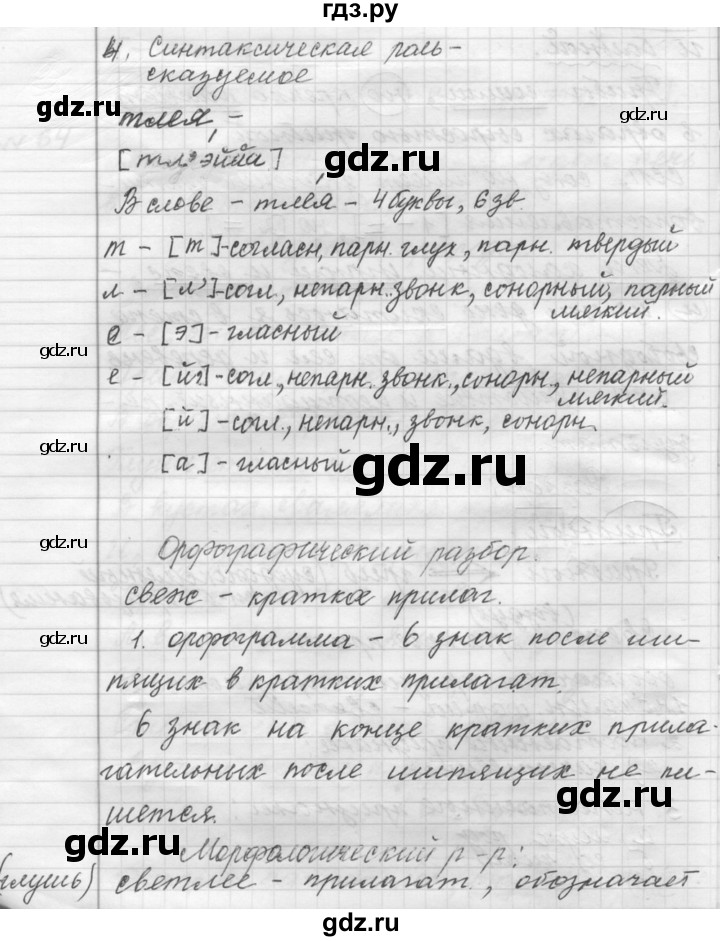 гдз.ру
4. Синтаксическая роль-
сказуемое
тлея, -
[тл'эййа]
В слове - тлея - 4 буквы, 6 зв.
т - [т]-согласн, парн. глух, парн. твердый
л - [л']-согл, непарн. звонк, сонорный, парный
мягкий.
е - [э]- гласный
е - [й']-согл, непарн. звонк., сонорн., непарный
мягкий.
[й]-согл., непарн., звонк, сонорн.
[а]- гласный
Орфографический разбор.
свеж - краткое прилаг.
1. орфограмма - ь знак после ши-
пящих в кратких прилагат.
ь знак на конце кратких прила-
гательных после шипящих не пи-
шется.
Морфологический р-р:
(глушь) светлее - прилагат., обозначает
gdz.ru
gdz.ru
gdz.ru
gdz.ru
gdz.ru
gdz.ru
gdz.ru
gdz.ru
gdz.ru
gdz.ru
гдз.ру